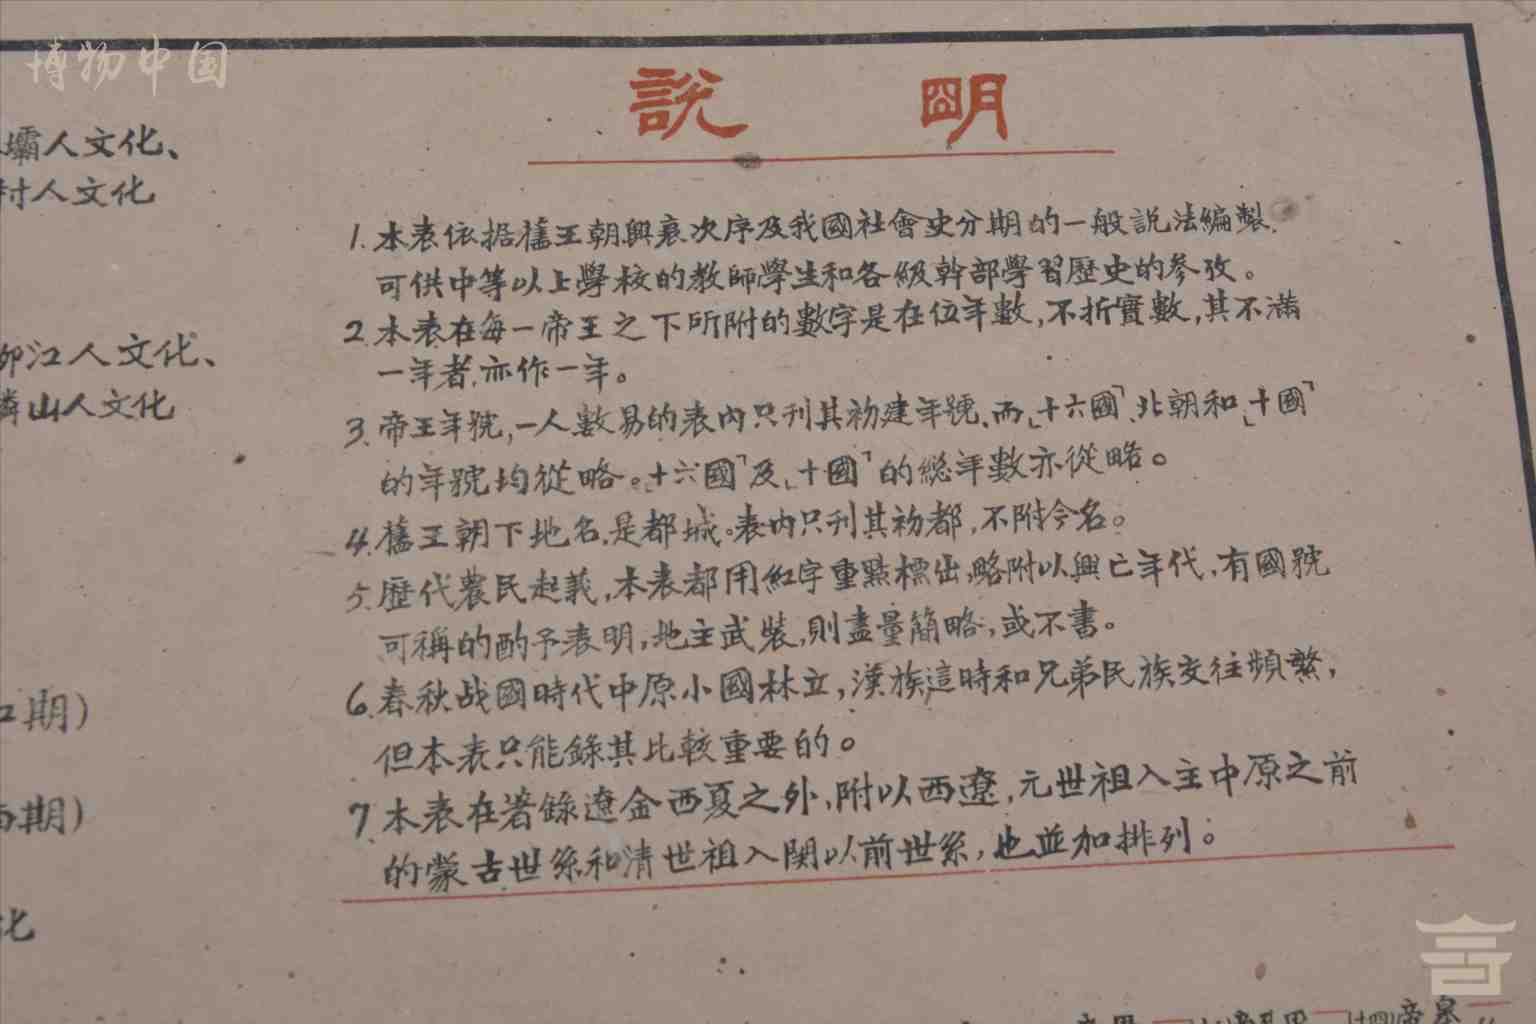 博物中国
說明
壩人文化、
村人文化
柳江人文化、
山人文化
期)
期)
化
1.本表依据舊王朝興衰次序及我國社會史分期的一般說法編製.
可供中等以上學校的教師學生和各級幹部學習歷史的參攷。
2.本表在每一帝王之下所附的數字是在位年數,不折實數,其不滿
一年者,亦作一年。
3.帝王年號,一人數易的表內只刊其初建年號.而「十六國」.北朝和「十國」
的年號均從略。「十六國」及「十國」的総年數亦從略。
4.舊王朝下地名.是都城。表內只刊其初都,不附今名。
5.歷代農民起義,本表都用紅字重點標出,略附以興亡年代.有國號
可稱的酌予表明,地主武裝,則盡量簡略,或不書。
6.春秋战國時代中原小國林立,漢族這時和兄弟民族交往頻繁,
但本表只能錄其比較重要的。
7.本表在著錄遼金西夏之外,附以西遼,元世祖入主中原之前
的蒙古世系和清世祖入関以前世系,也並加排列。